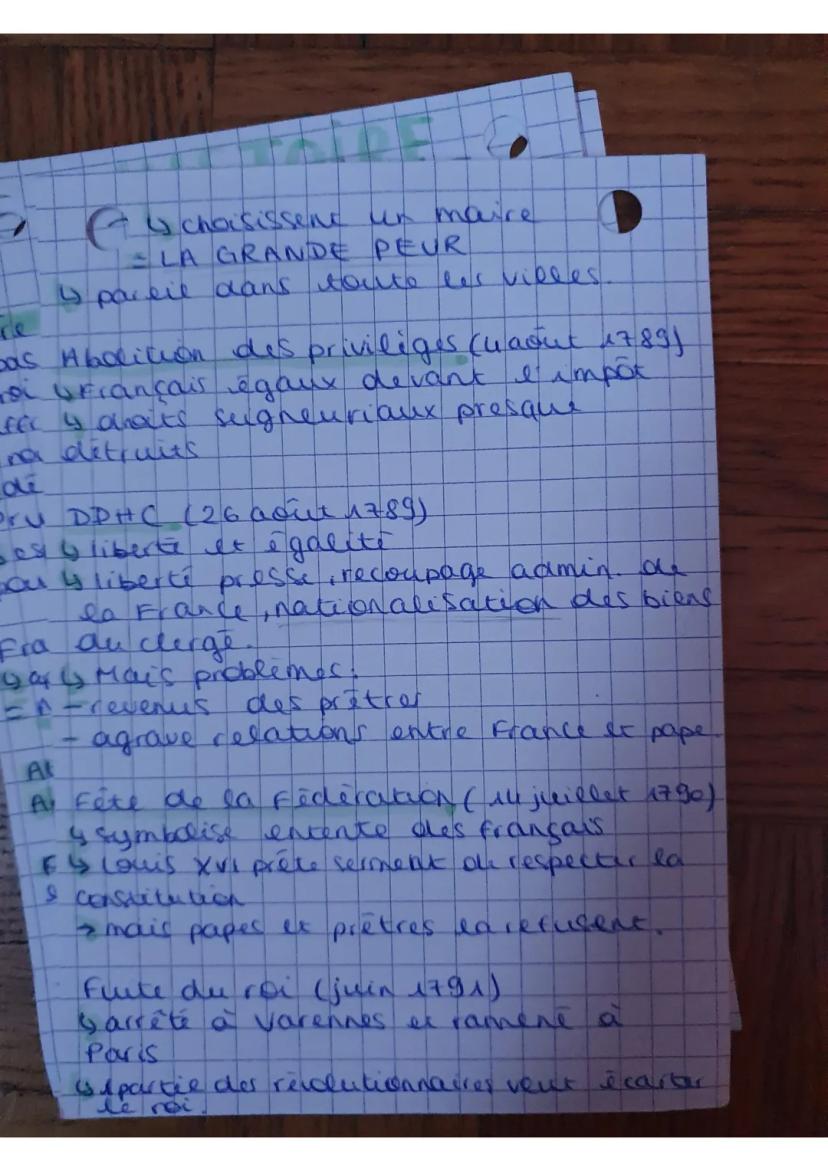 TOIRE
↳ choisissent un maire
= LA GRANDE PEUR
↳ pareil dans toute les villes.
Abolition des privilèges (4 août 1789)
↳ Français égaux devant l'impôt
↳ droits seigneuriaux presque
détruits
DDHC (26 août 1789)
↳ liberté et égalité
↳ liberté presse, recoupage admin. de
la France, nationalisation des biens
du clergé.
↳ Mais problèmes:
- revenus des prêtres
- agrave relations entre France et pape
Fête de la Fédération (14 juillet 1790)
↳ symbolise entente des français
↳ Louis XVI prête serment de respecter la
constitution
→ mais papes et prêtres la refusent.
Fuite du roi (juin 1791)
↳ arrêté à Varennes et ramené à
Paris
↳ 1 partie des révolutionnaires veut écarter
le roi.